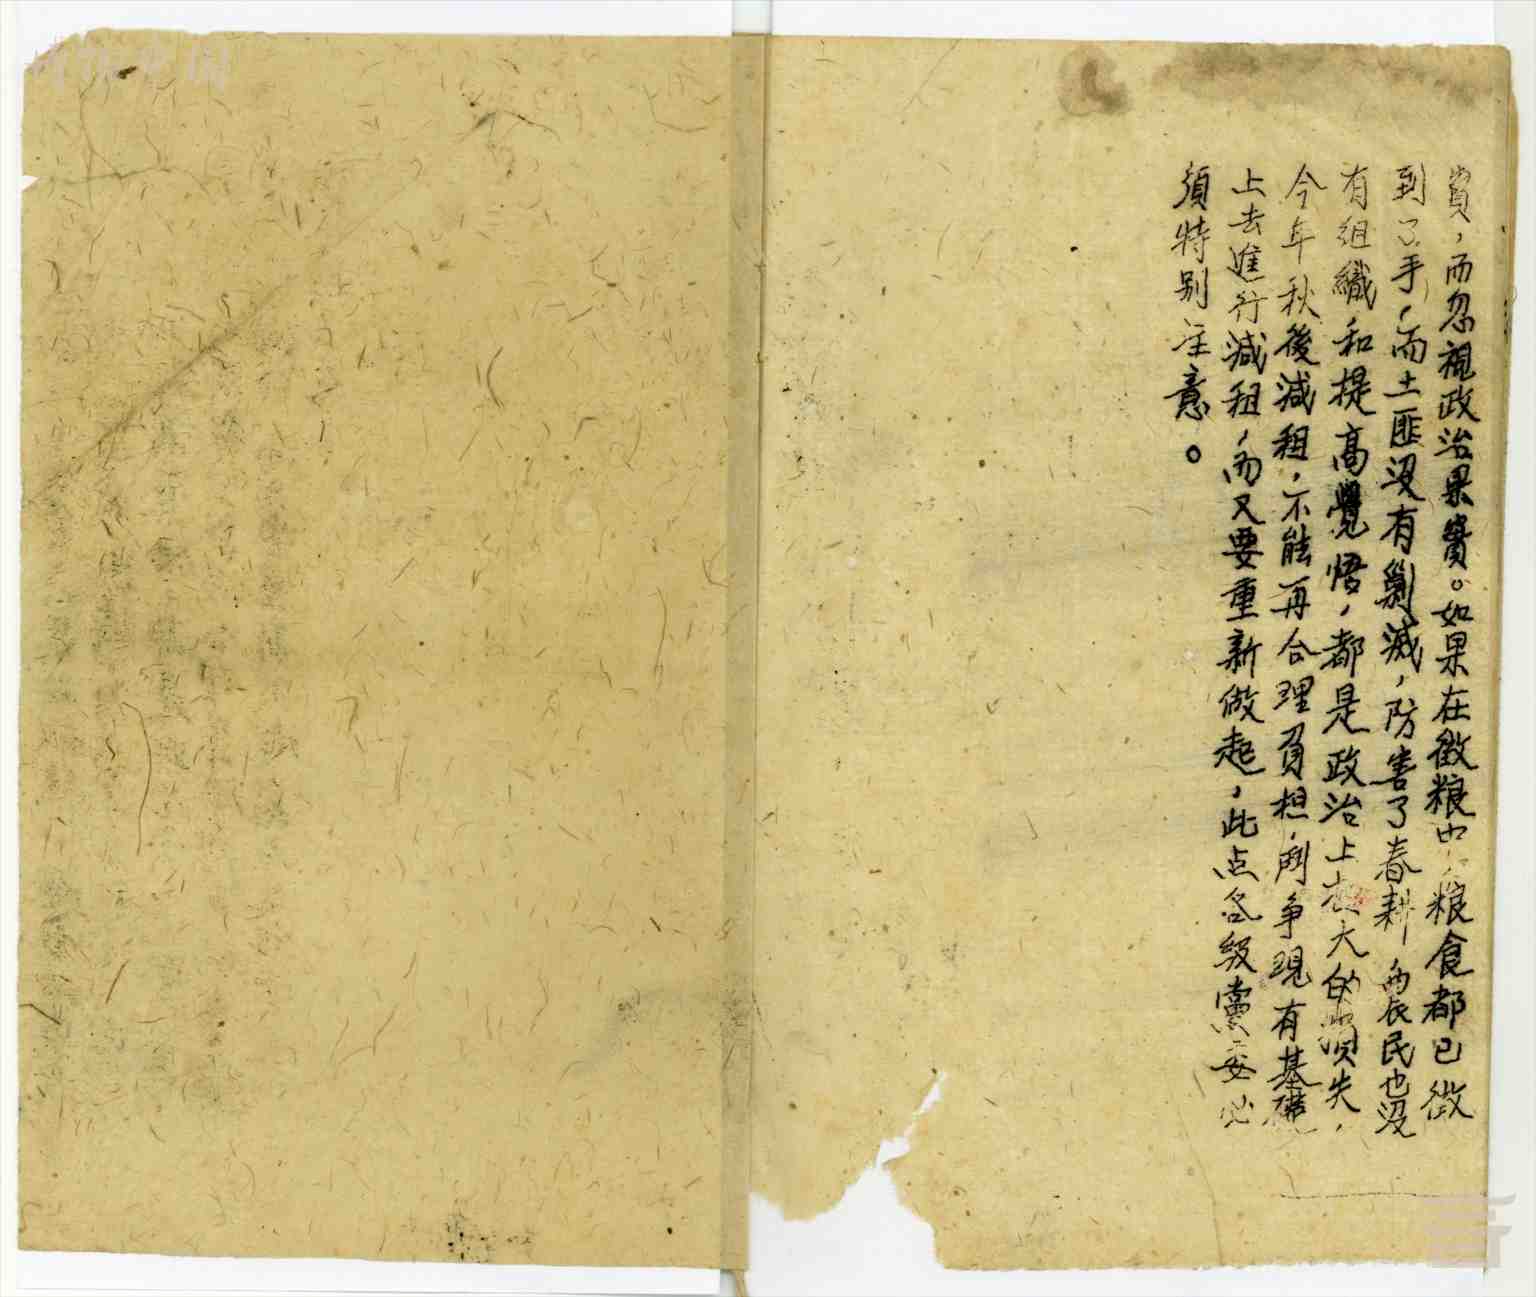 實，而忽視政治果實。如果在徵粮中，粮食都已徵
到了手，而土匪没有剿滅，防害了春耕，而农民也没
有组織和提高覺悟，都是政治上極大的損失，
今年秋後減租，不能再合理負担，鬥争現有基礎
上去進行減租，而又要重新做起，此点各级黨委必
須特别注意。